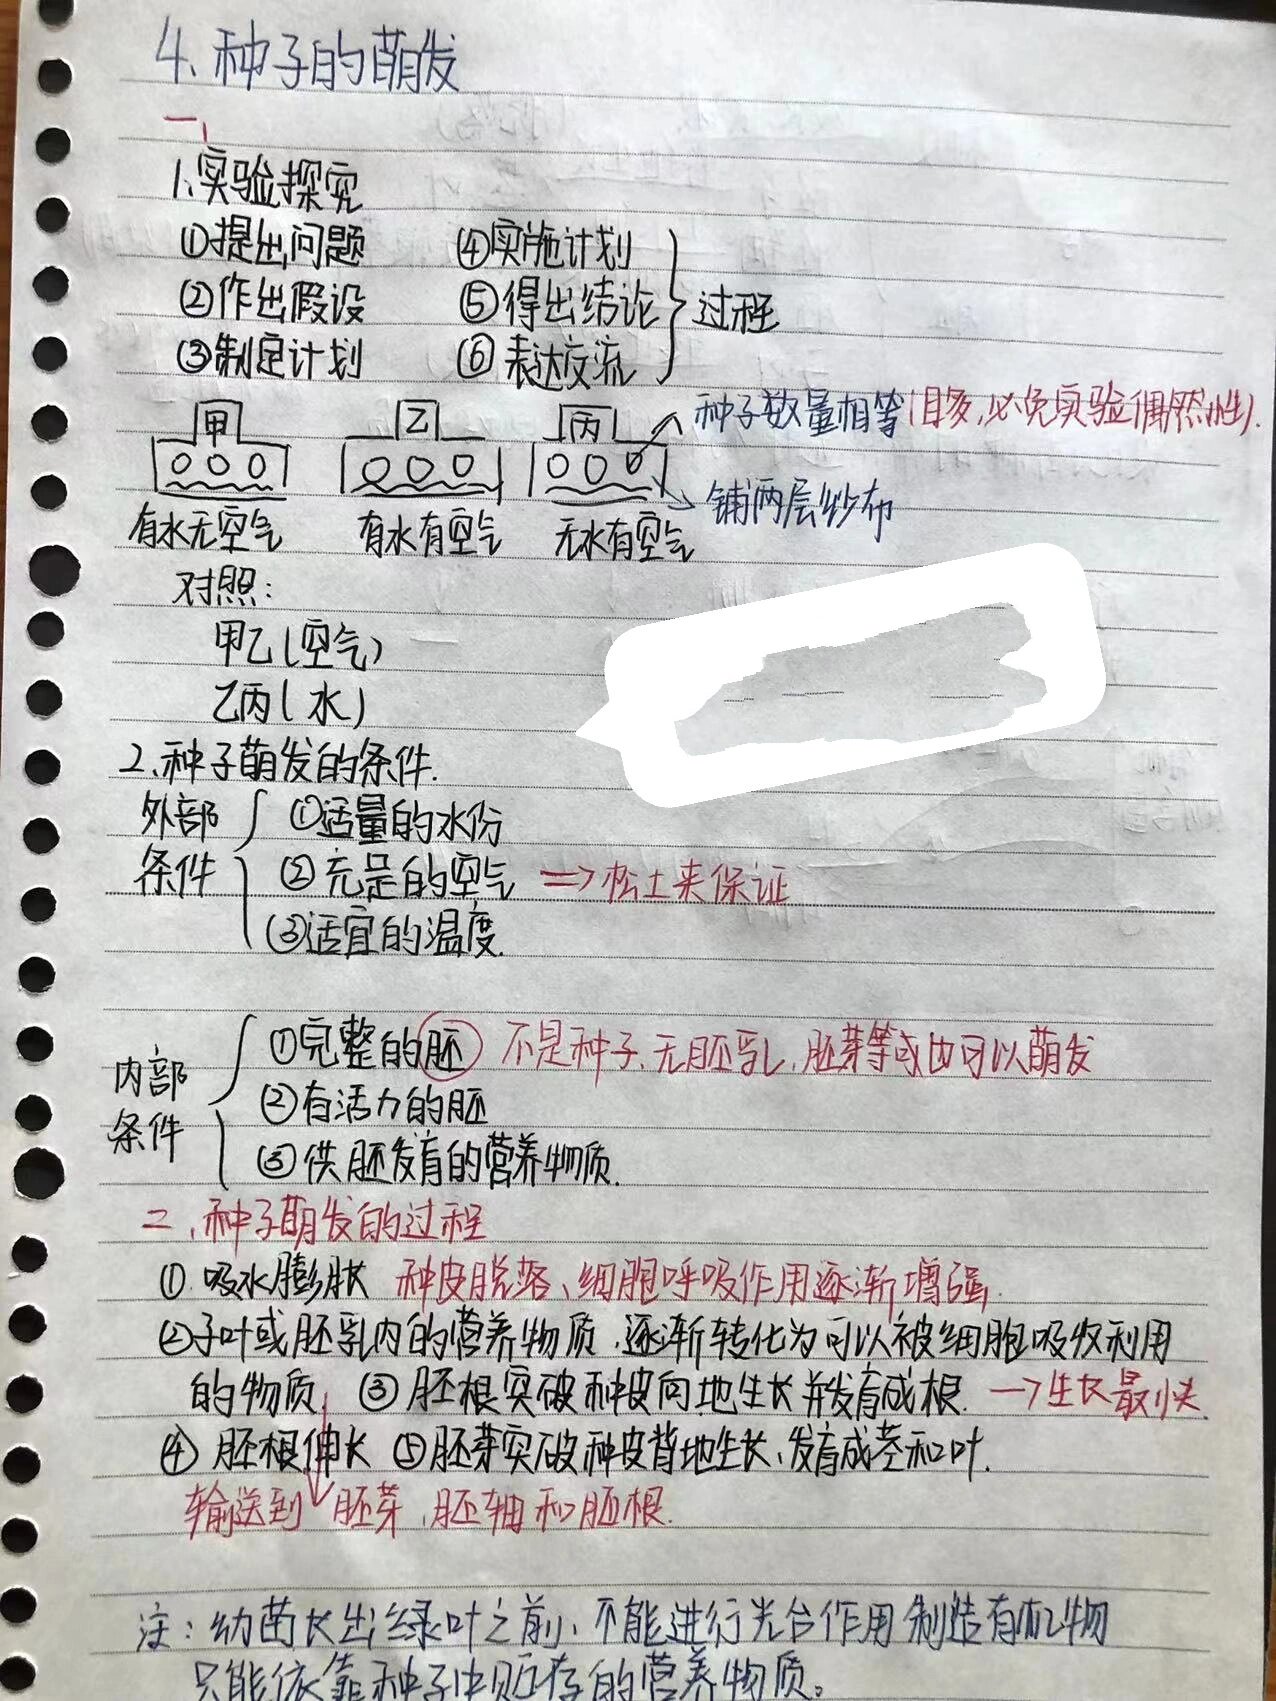 4、种子的萌发
一、
1、实验探究
①提出问题 ④实施计划
②作出假设 ⑤得出结论 过程
③制定计划 ⑥表达交流
甲 乙 丙 种子数量相等(且多,必免实验偶然性).
铺两层纱布
有水无空气 有水有空气 无水有空气
对照:
甲乙(空气)
乙丙(水)
2、种子萌发的条件.
外部条件
①适量的水份
②充足的空气 => 松土来保证
③适宜的温度.
内部条件
①完整的胚 不是种子、无胚乳、胚芽等成也可以萌发
②有活力的胚
③供胚发育的营养物质.
二、种子萌发的过程
①吸水膨胀 种皮脱落、细胞呼吸作用逐渐增强.
②子叶或胚乳内的营养物质,逐渐转化为可以被细胞吸收利用
的物质, ③胚根突破种皮向地生长并发育成根. →生长最快
④胚根伸长 ⑤胚芽突破种皮背地生长、发育成茎和叶.
输送到胚芽、胚轴和胚根.
注:幼苗长出绿叶之前、不能进行光合作用制造有机物
只能依靠种子中贮存的营养物质。